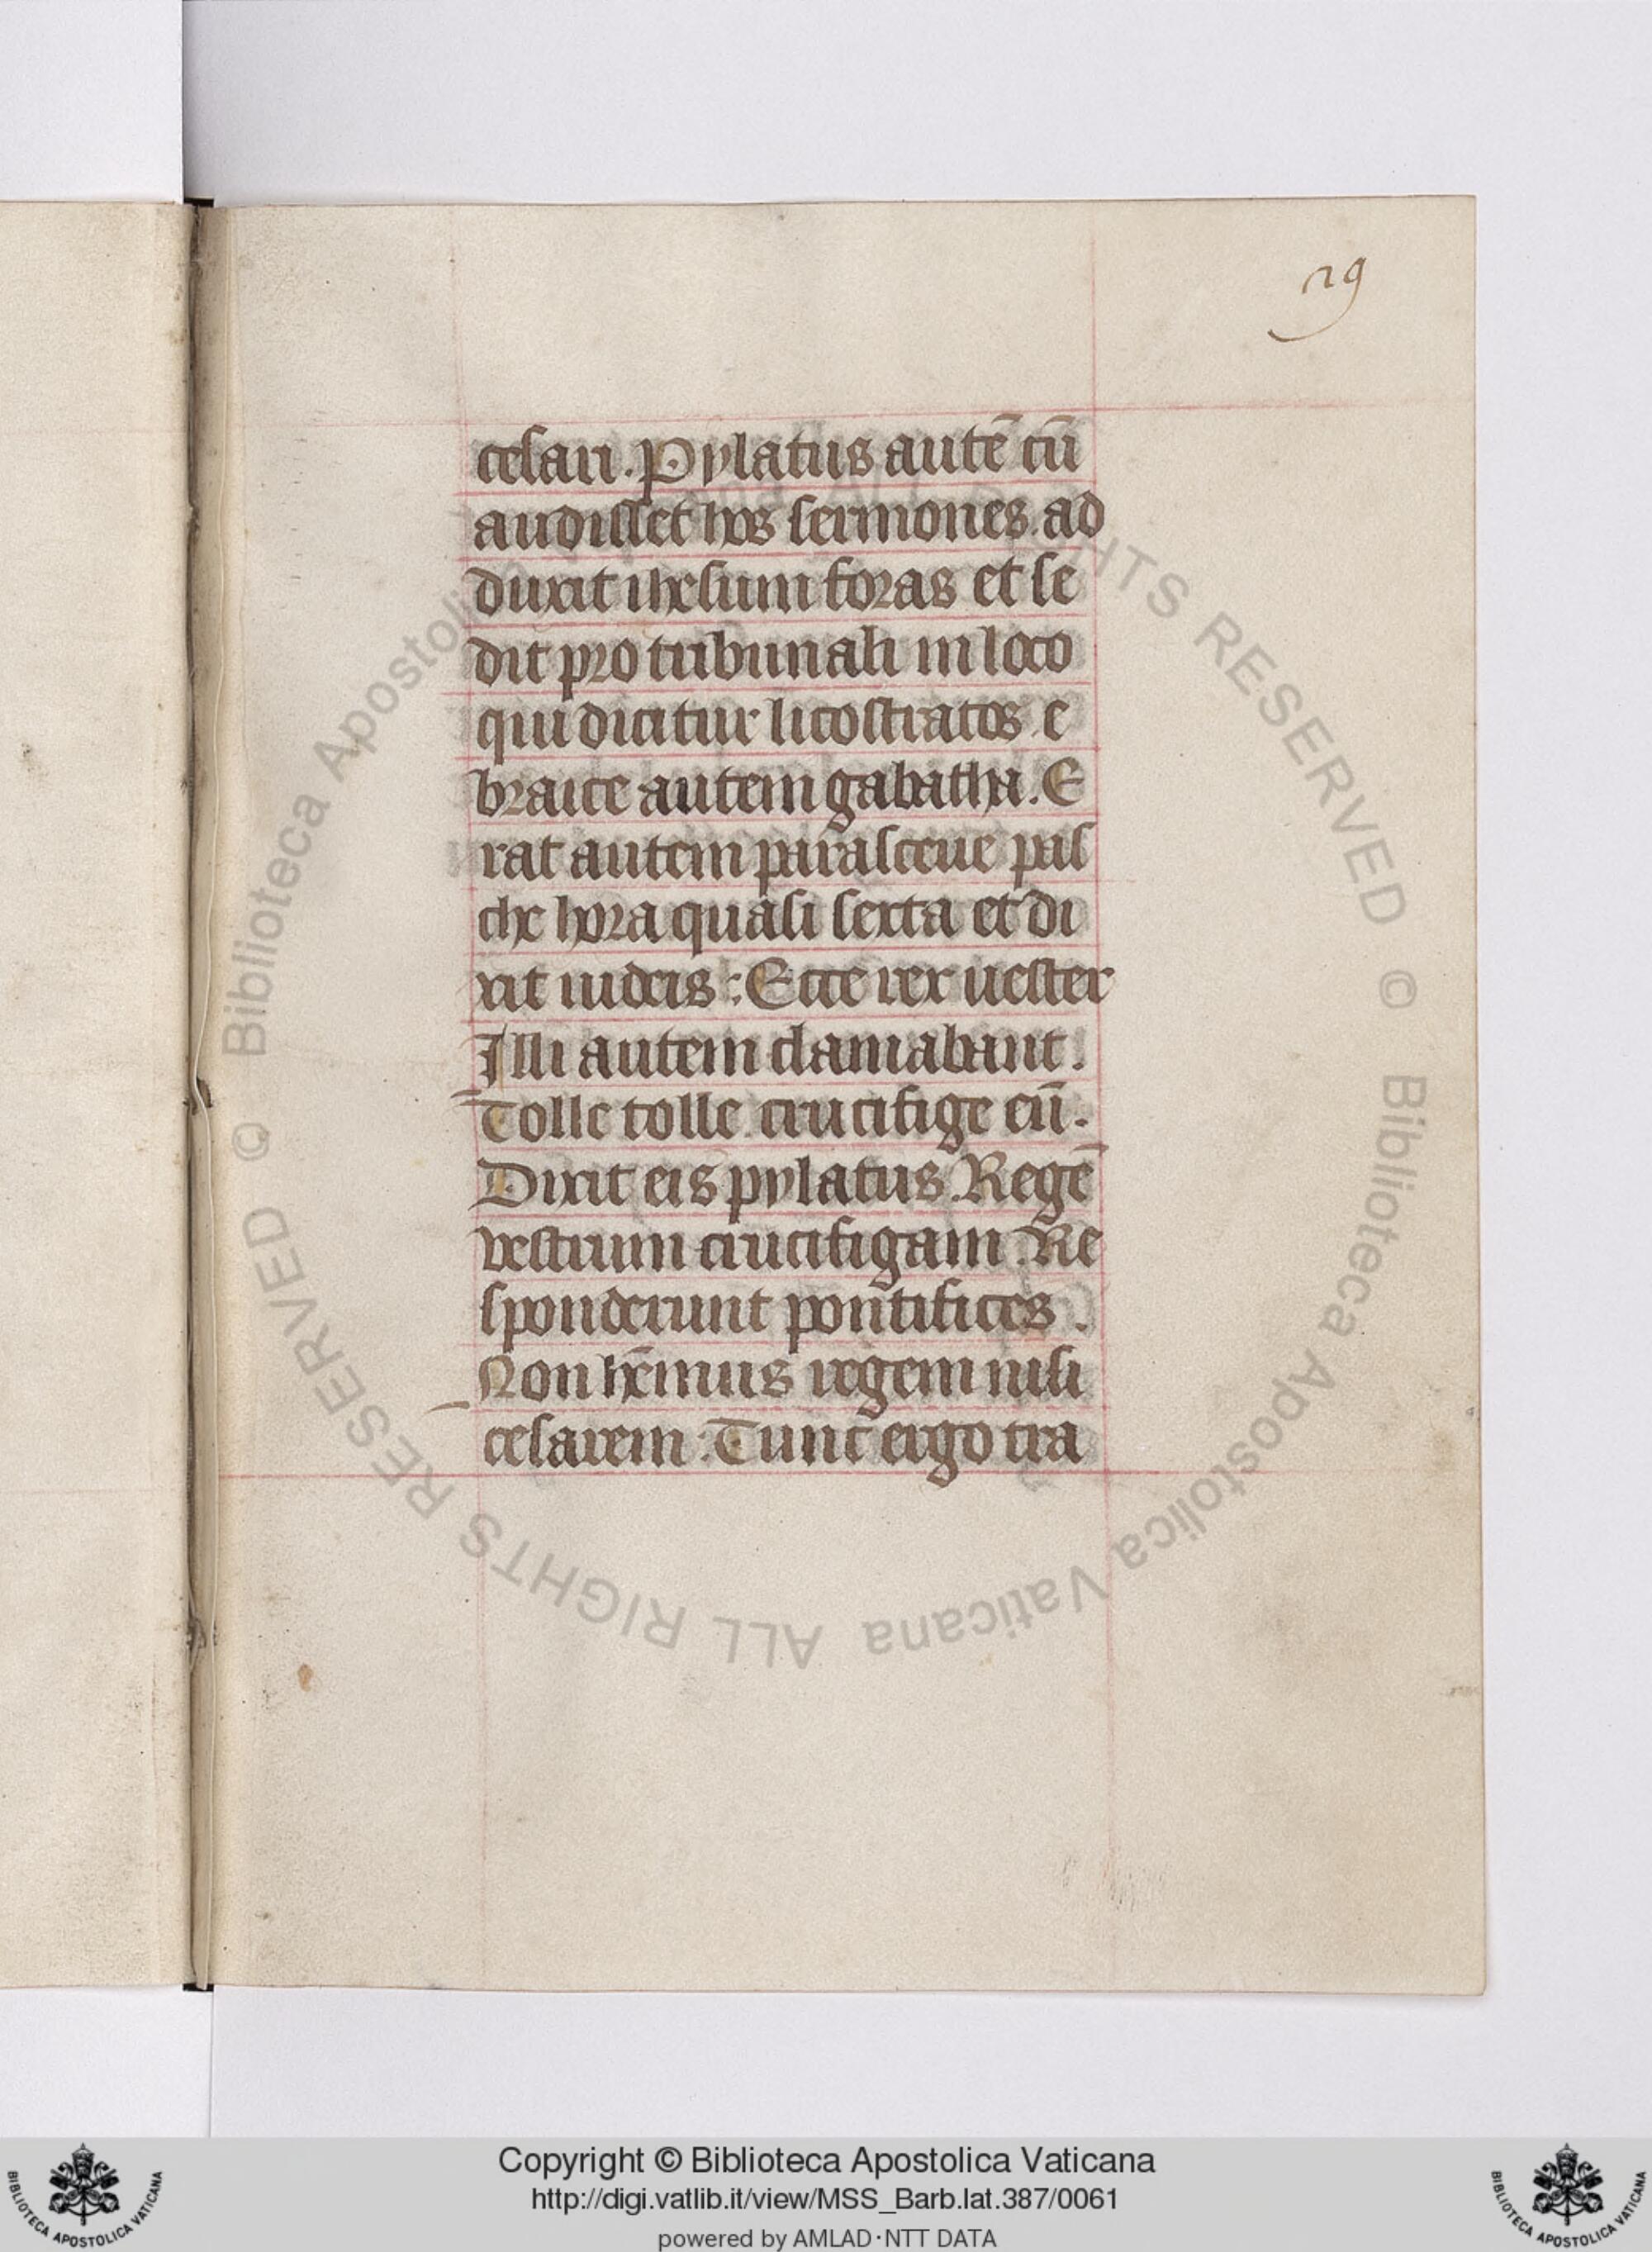 29
cesari. Pylatus autē cū
audisset hos sermones. ad
duxit ihesum foras et se
dit pro tribunali in loco
qui dicitur licostratos. e
braice autem gabatha. E
rat autem parasceue pas
che hora quasi sexta et di
xit iudeis : Ecce rex uester
Illi autem clamabant.
Tolle tolle. crucifige eū.
Dixit eis pylatus. Regē
vestrum crucifigam. Re
sponderunt pontifices.
Non hēmus regem nisi
cesarem : Tunc ergo tra
© Biblioteca Apostolica Vaticana ALL RIGHTS RESERVED © Biblioteca Apostolica Vaticana ALL RIGHTS RESERVED
Copyright © Biblioteca Apostolica Vaticana
http://digi.vatlib.it/view/MSS_Barb.lat.387/0061
powered by AMLAD·NTT DATA
BIBLIOTECA APOSTOLICA VATICANA
BIBLIOTECA APOSTOLICA VATICANA